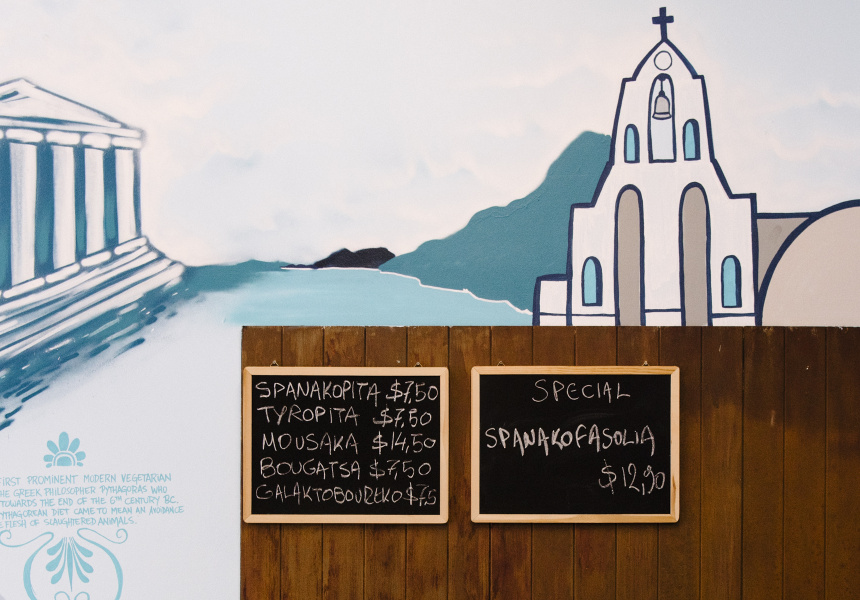 SPANAKOPITA $7,50
TYROPITA $7,50
MOUSAKA $14,50
BOUGATSA $7,50
GALAKTOBOUREKO $7,5
SPECIAL
SPANAKOFASOLIA
$12,90
FIRST PROMINENT MODERN VEGETARIAN
HE GREEK PHILOSOPHER PYTHAGORAS WHO
TOWARDS THE END OF THE 6TH CENTURY BC.
PYTHAGOREAN DIET CAME TO MEAN AN AVOIDANCE
E FLESH OF SLAUGHTERED ANIMALS.